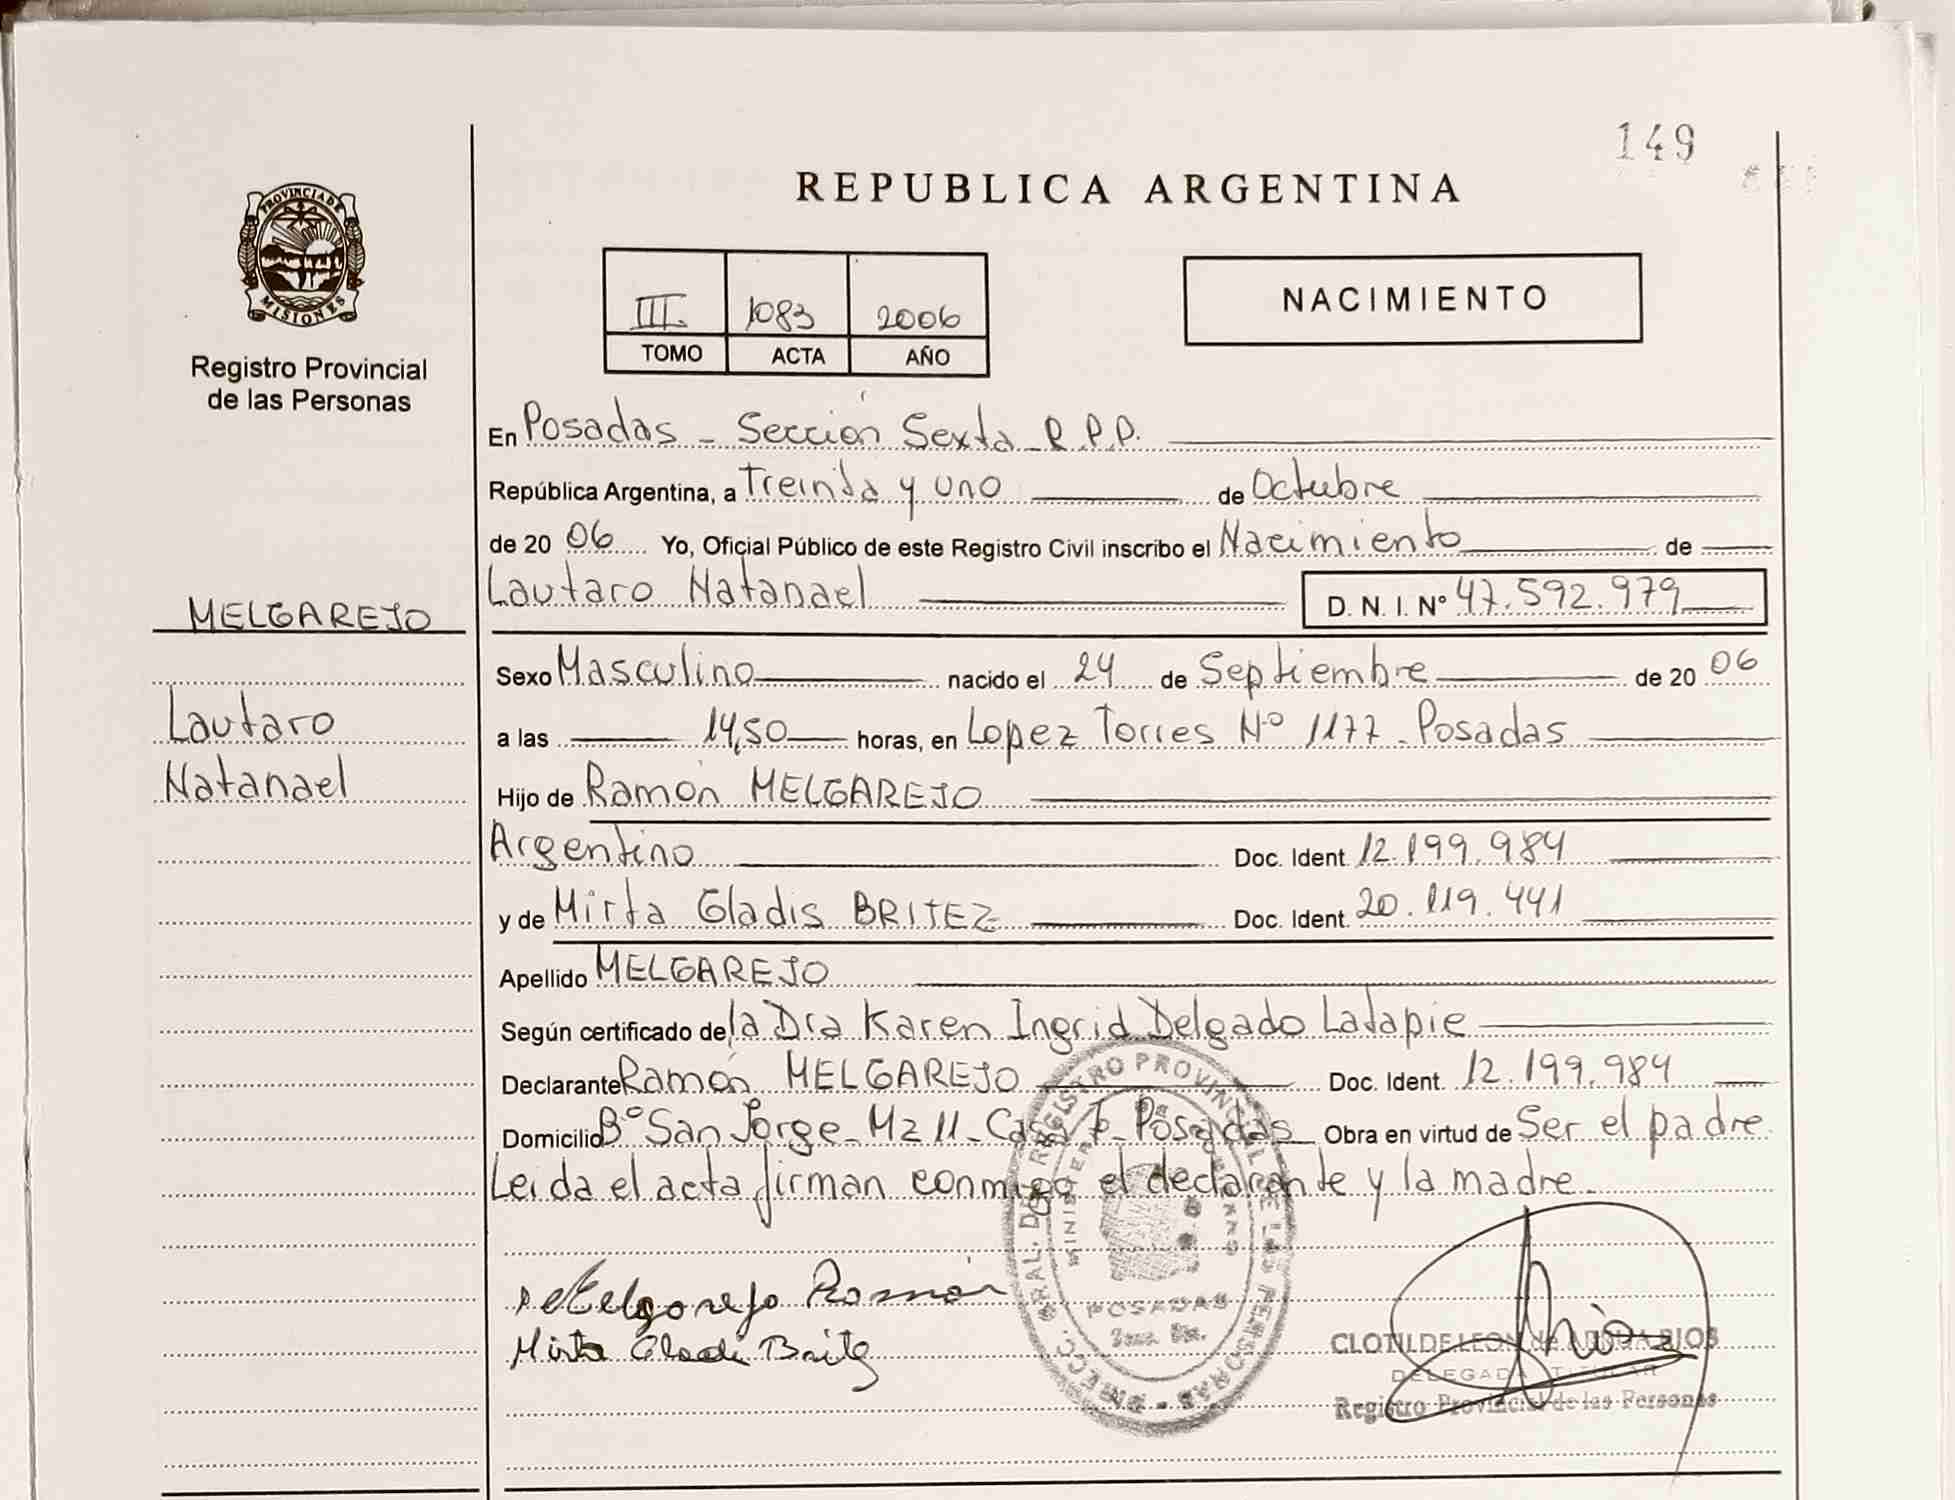 149
REPUBLICA ARGENTINA
PROVINCIA DE
MISIONES
Registro Provincial
de las Personas
III. 1083 2006
TOMO ACTA AÑO
NACIMIENTO
En Posadas - Sección Sexta R.P.P.
República Argentina, a Treinta y uno de Octubre
de 20 06 Yo, Oficial Público de este Registro Civil inscribo el Nacimiento de
MELGAREJO
Lautaro Natanael D. N. I. Nº 47.592.979
Sexo Masculino nacido el 24 de Septiembre de 20 06
Lautaro
a las 14,50 horas, en Lopez Torres Nº 1177 - Posadas
Natanael
Hijo de Ramón MELGAREJO
Argentino Doc. Ident. 12.199.984
y de Mirta Gladis BRITEZ Doc. Ident. 20.119.441
Apellido MELGAREJO
Según certificado de la Dra Karen Ingrid Delgado Latapie
Declarante Ramón MELGAREJO Doc. Ident. 12.199.984
Domicilio Bº San Jorge - Mz 11 - Casa 7 - Posadas Obra en virtud de Ser el padre.
Leida el acta firman conmigo el declarante y la madre.
Melgarejo Ramón
Mirta Gladi Britez
POSADAS
CLOTILDE LEON de RIOS
DELEGADA TITULAR
Registro Provincial de las Personas